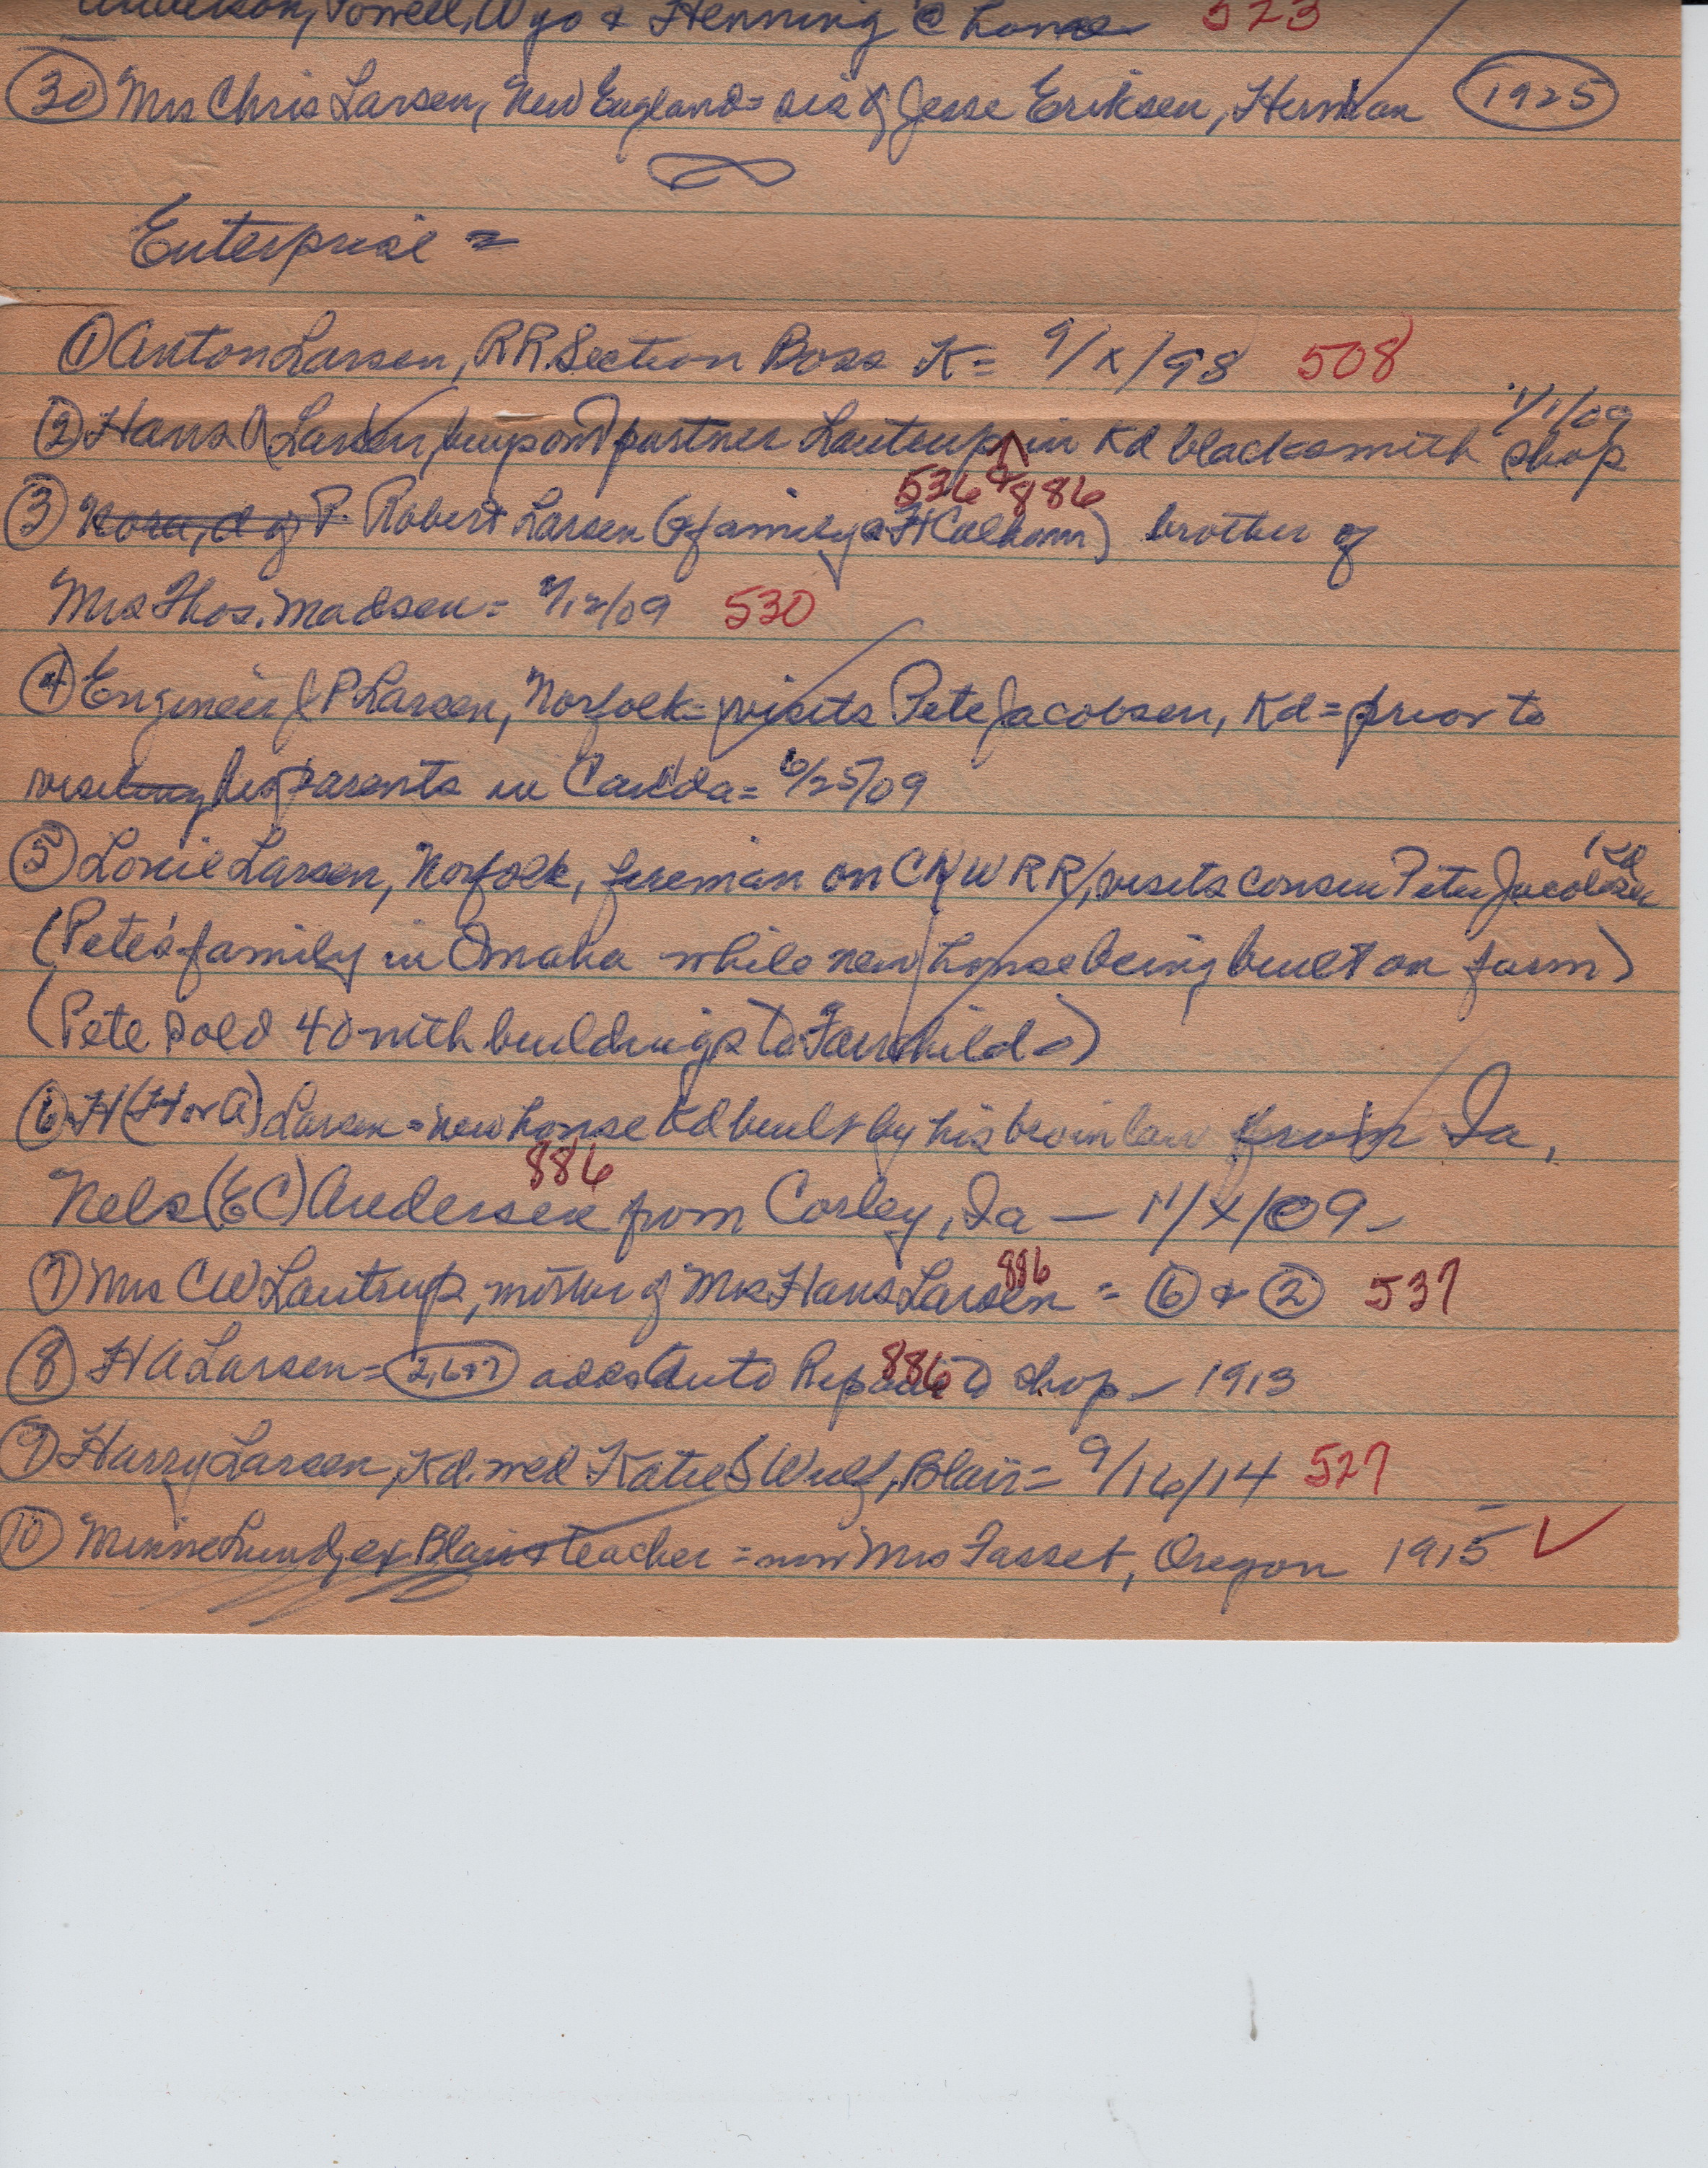 Anderson, Powell, Wyo & Henning @ home 523
30 Mrs Chris Larsen, New England = sis of Jesse Eriksen, Herman 1925
Enterprise =
1 Anton Larsen, RR. Section Boss K = 9/x/98 508
2 Hans A Larsen, buys out partner Lautrup in Kd blacksmith shop 1/1/09
536 & 886
3 Nora, d of P. Robert Larsen (& family @ Ft Calhoun) brother of
Mrs Thos. Madsen = /12/09 530
4 Engineer J P Larsen, Norfolk = visits Pete Jacobsen, Kd = prior to
visiting his parents in Canada = 6/25/09
5 Louie Larsen, Norfolk, fireman on CNW RR, visits cousin Peter Jacobsen Kd
(Pete's family in Omaha while new house being built on farm)
(Pete sold 40 with buildings to Fairchilds)
6 H (H or A) Larsen = new house Kd built by his bro in law from Ia,
886
Nels (EC) Andersen from Corley, Ia — 11/x/09 -
7 Mrs CW Lautrup, mother of Mrs Hans Larsen 886 = 6 & 2 537
8 H A Larsen = adds Auto Repair to shop - 1913
886
9 Harry Larsen, Kd. wed Katie S Wulf, Blair = 9/16/14 527
10 Minnie Lund, ex Blair teacher = now Mrs Fasset, Oregon 1915 ✓